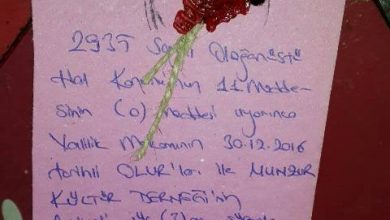 2935 Sayılı Olağanüstü
Hal Kanunu'nun 11 Madde-
sinin (o) maddesi uyarınca
Valilik Makamının 30.12.2016
tarihli OLUR'ları ile MUNZUR
KÜLTÜR DERNEĞİ'nin